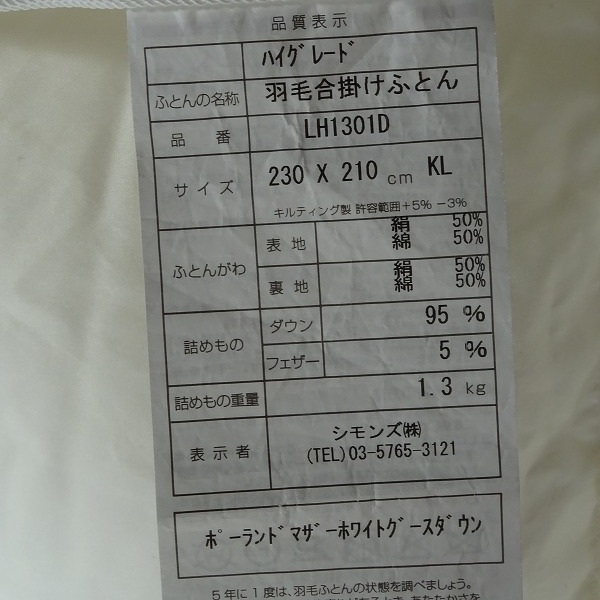 品質表示
ハイグレード
ふとんの名称 羽毛合掛けふとん
品番 LH1301D
サイズ 230 X 210 cm KL
キルティング製 許容範囲+5% -3%
ふとんがわ 表地 絹 50%
綿 50%
裏地 絹 50%
綿 50%
詰めもの ダウン 95 %
フェザー 5 %
詰めもの重量 1.3 kg
表示者 シモンズ㈱
(TEL) 03-5765-3121
ポーランドマザーホワイトグースダウン
5年に1度は、羽毛ふとんの状態を調べましょう。